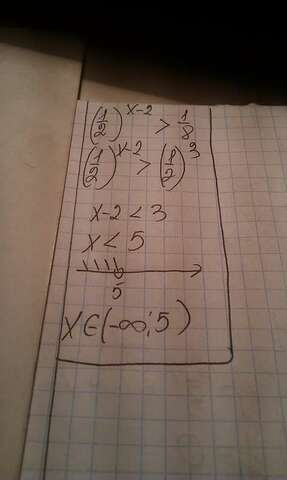 (1/2)^(x-2) > 1/8
(1/2)^(x-2) > (1/2)^3
x-2 < 3
x < 5
5
x∈(-∞;5)